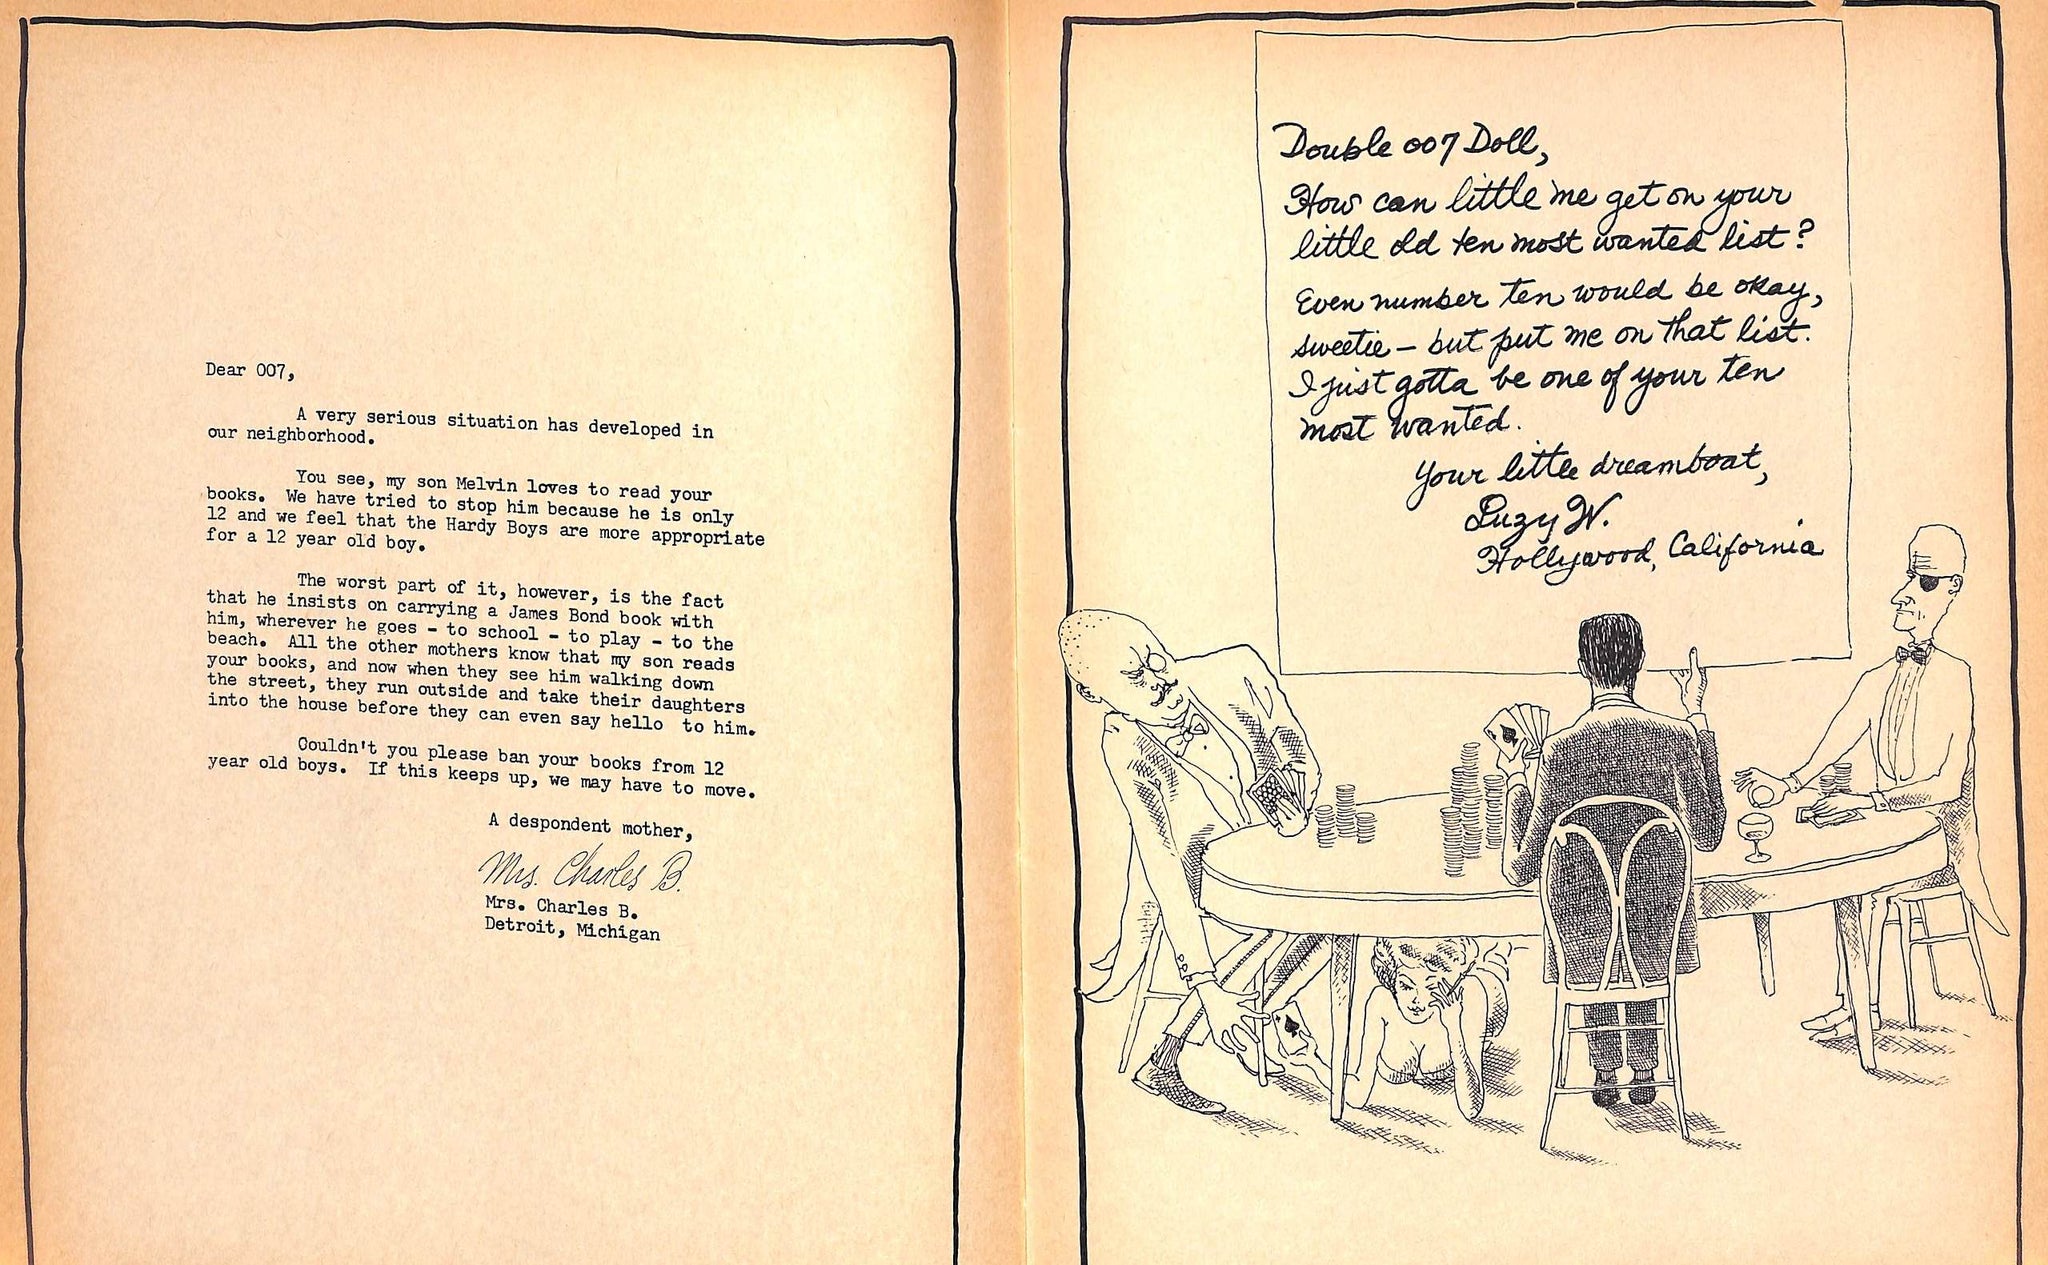 Dear 007,
A very serious situation has developed in
our neighborhood.
You see, my son Melvin loves to read your
books. We have tried to stop him because he is only
12 and we feel that the Hardy Boys are more appropriate
for a 12 year old boy.
The worst part of it, however, is the fact
that he insists on carrying a James Bond book with
him, wherever he goes - to school - to play - to the
beach. All the other mothers know that my son reads
your books, and now when they see him walking down
the street, they run outside and take their daughters
into the house before they can even say hello to him.
Couldn't you please ban your books from 12
year old boys. If this keeps up, we may have to move.
A despondent mother,
Mrs. Charles B.
Mrs. Charles B.
Detroit, Michigan
Double 007 Doll,
How can little me get on your
little old ten most wanted list?
Even number ten would be okay,
sweetie – but put me on that list.
I just gotta be one of your ten
most wanted.
Your little dreamboat,
Suzy W.
Hollywood, California